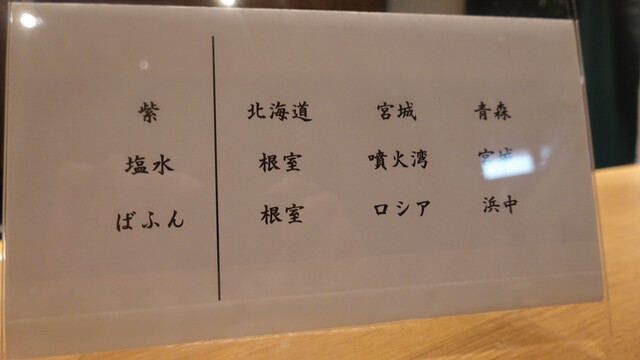 紫 北海道 宮城 青森
塩水 根室 噴火湾 宮城
ばふん 根室 ロシア 浜中